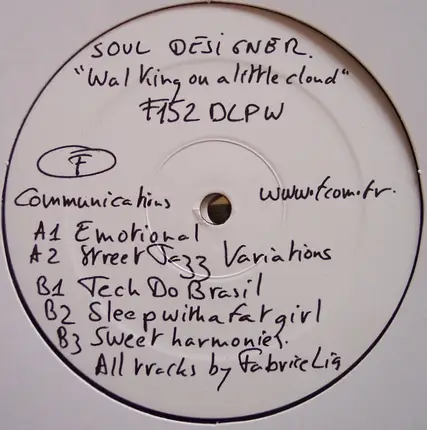 SOUL DESIGNER.
"Walking on a little cloud"
F152 DLPW
F
Communications www.fcom.fr.
A1 Emotional
A2 Street Jazz Variations
B1 Tech Do Brasil
B2 Sleep with a fat girl
B3 Sweet harmonies.
All tracks by Fabrice Lig